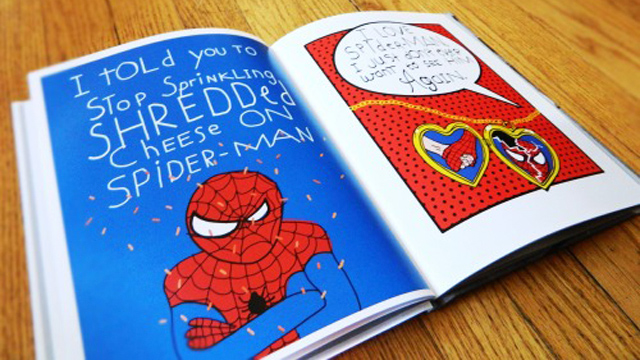 I TOLD YOU TO
STOP SPrinkLING
SHREDDed
CHeese ON
SPIDER-MAN.
I LOVE
SPIDERMAN
I just don't ever
want to see him
Again.